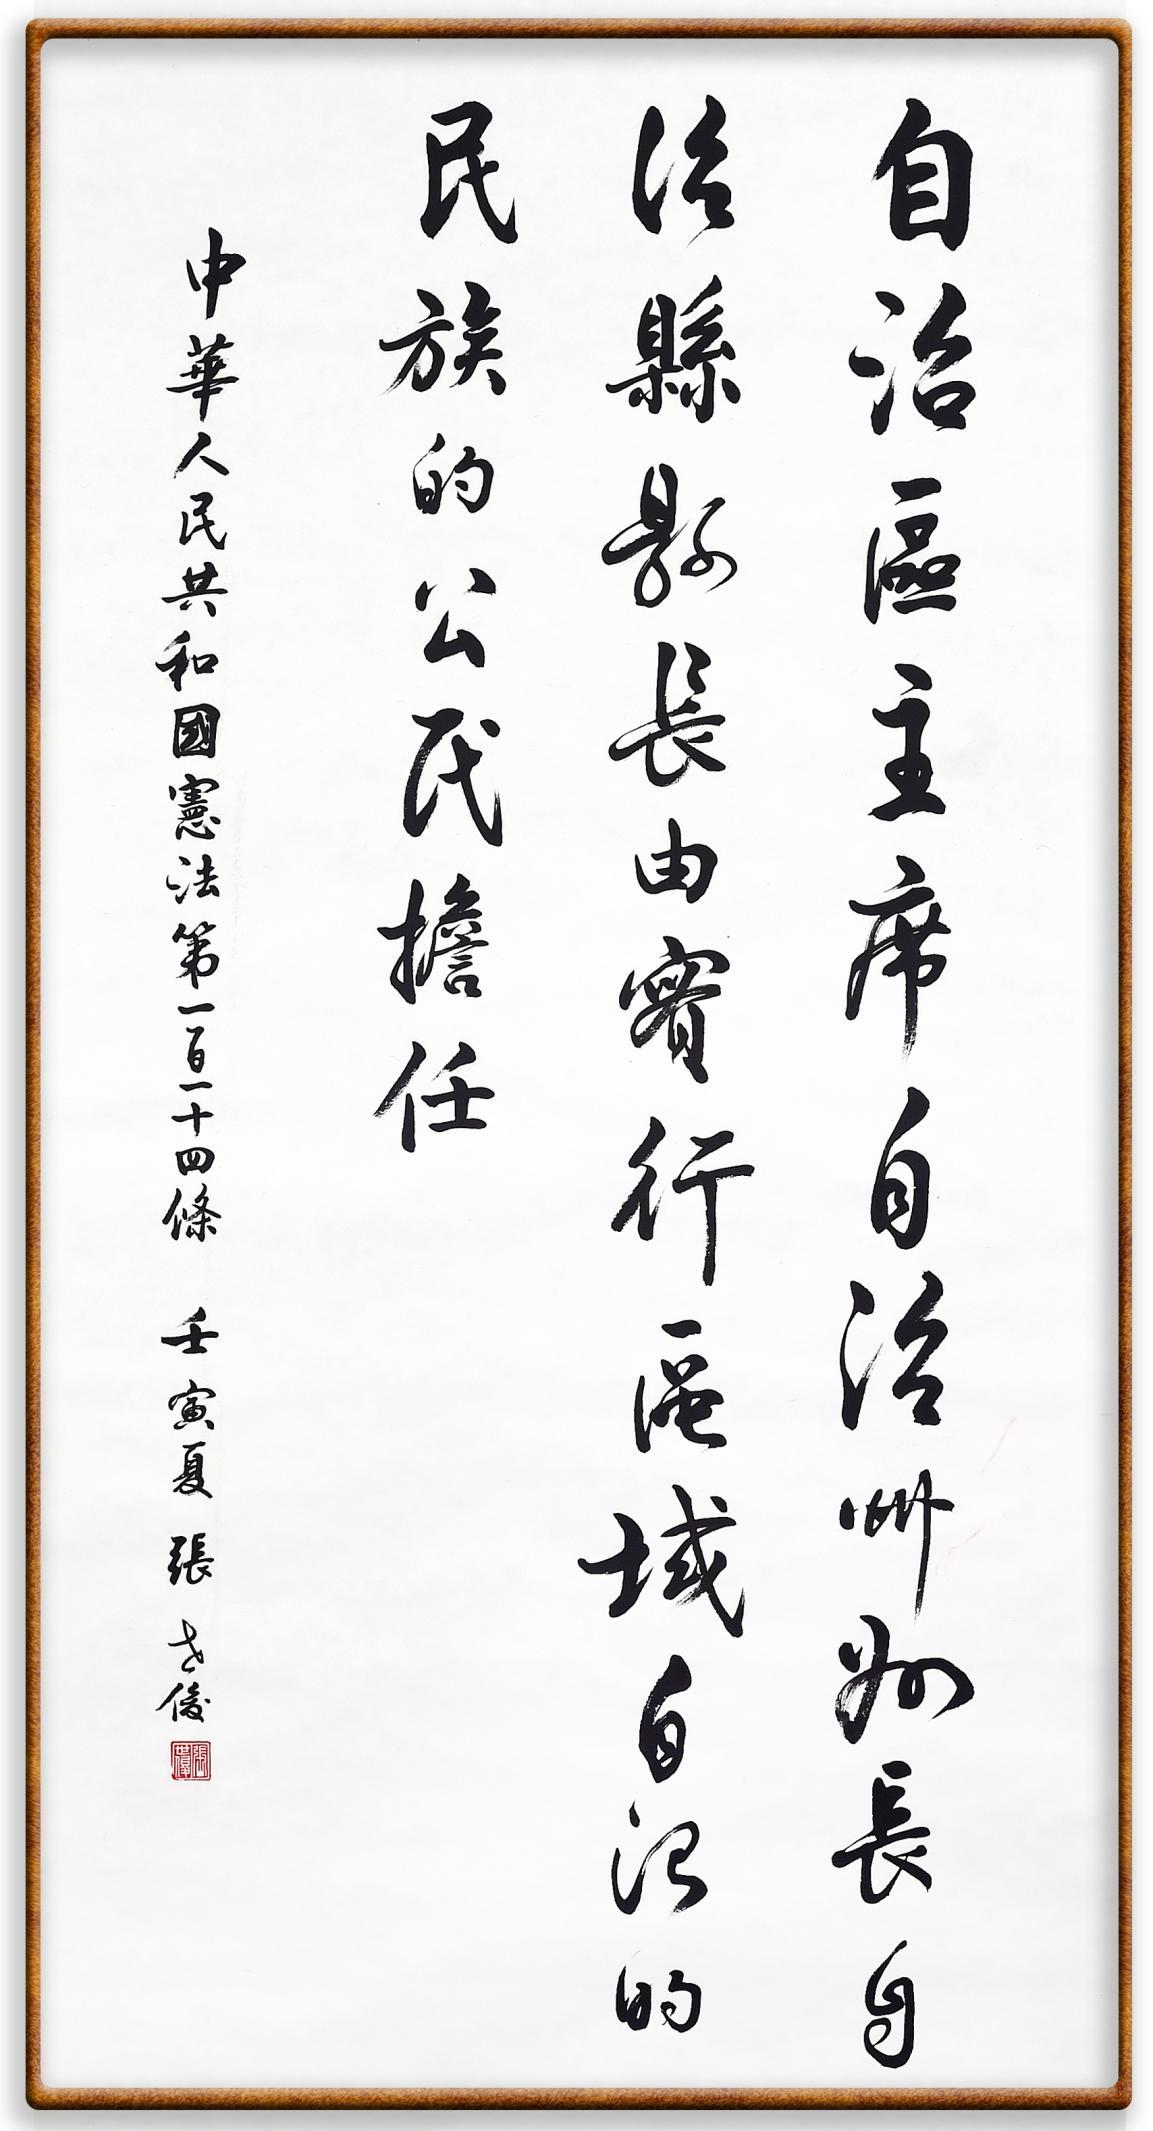 自治區主席自治州州長自
治縣縣長由實行區域自治的
民族的公民擔任
中華人民共和國憲法第一百一十四條 壬寅夏 張世俊